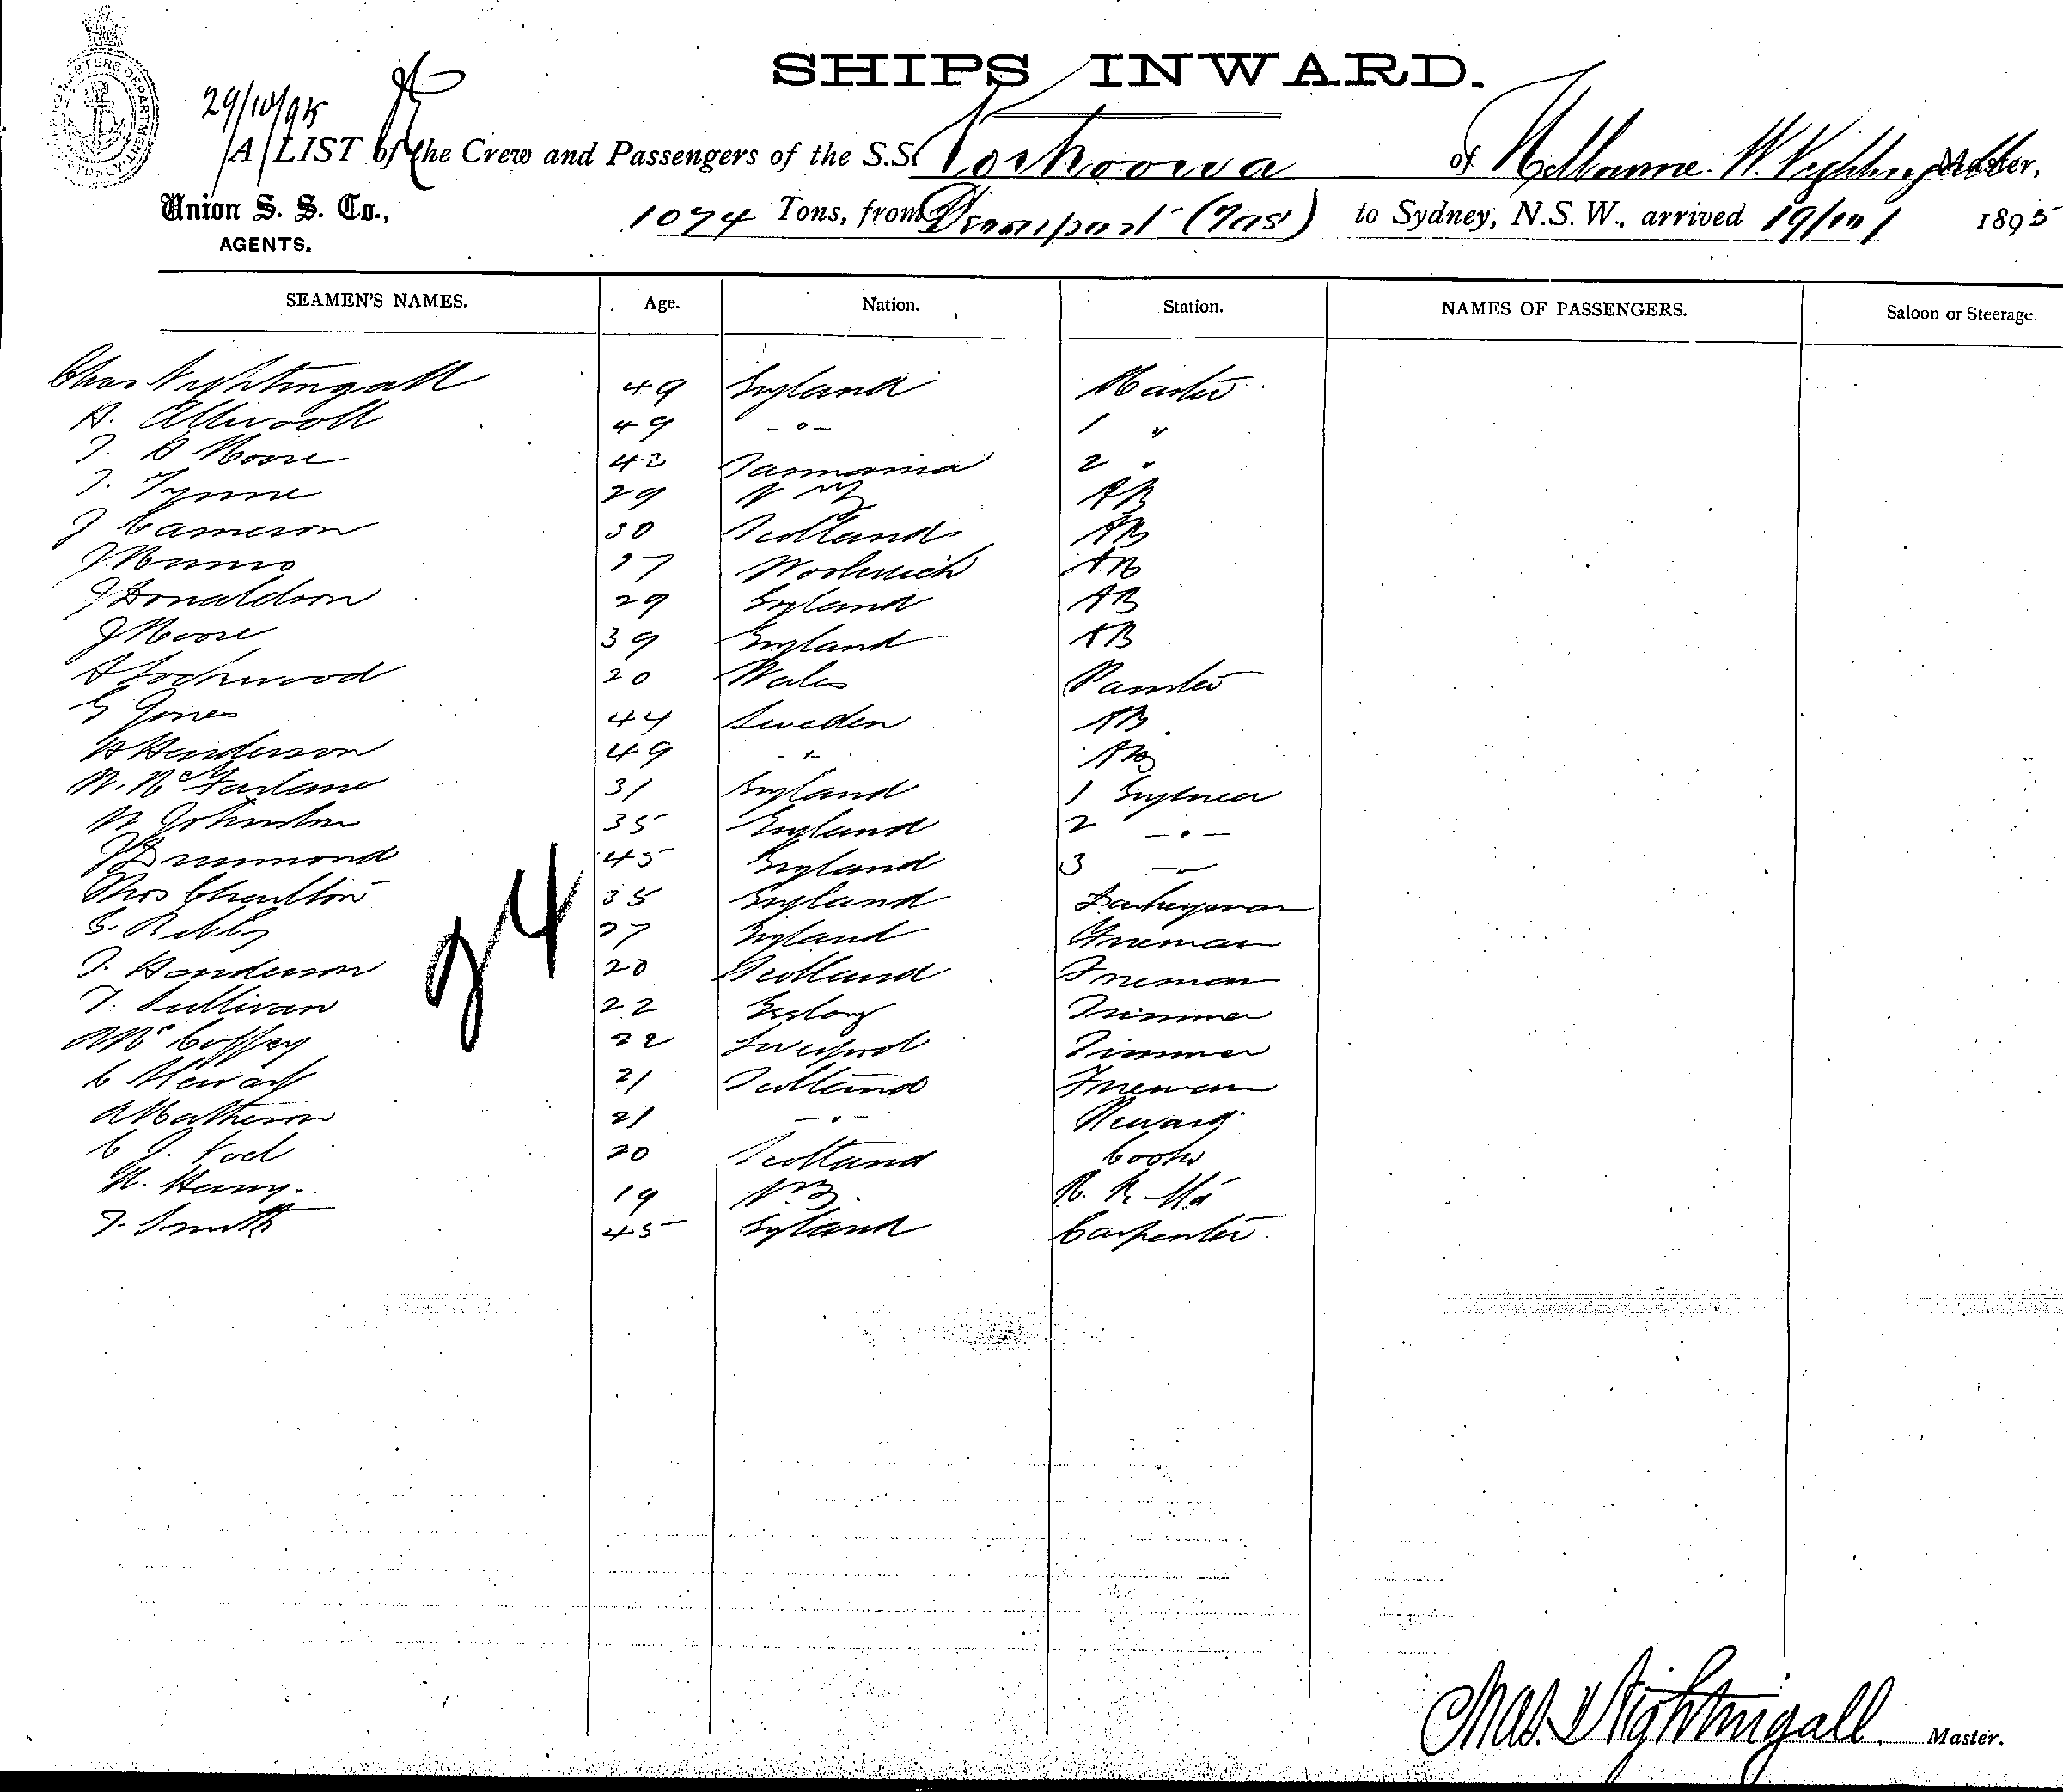 SHIPS INWARD.
CHARTERS DEPARTMENT SYDNEY
29/10/95
A LIST of the Crew and Passengers of the S.S. of Melbourne. W. Nightingall Master,
Union S. S. Co.,
AGENTS.
1074 Tons, from Devonport (Tas) to Sydney, N.S.W., arrived 19/10/ 1895
SEAMEN'S NAMES. Age. Nation. Station. NAMES OF PASSENGERS. Saloon or Steerage.
Chas Nightingall 49 England Master
A. Ellwood 49 - " - 1 "
J. A Moore 43 Tasmania 2 "
J. Tynne 29 N Z AB
J Cameron 30 Scotland AB
J Munro 27 Woolwich AB
J Donaldson 29 England AB
J Moore 39 England AB
A Lockwood 20 Wales
G Jones 44 Sweden AB
A Henderson 49 - " - AB
W. McFarlane 31 England 1 Engineer
W Johnston 35 England 2 - " -
J Drummond 45 England 3 - " -
Thos Charlton 35 England Donkeyman
27 England Fireman
J. Henderson 20 Scotland Fireman
T. Sullivan 22 Geelong Trimmer
McCoffey 22 Liverpool Trimmer
C Stewart 21 Scotland Fireman
A Matheson 21 - " - Steward
C J. 20 Scotland Cook
H. Henry. 19 N.Z.
J. Smith 45 England Carpenter.
24
Chas. Nightingall. Master.